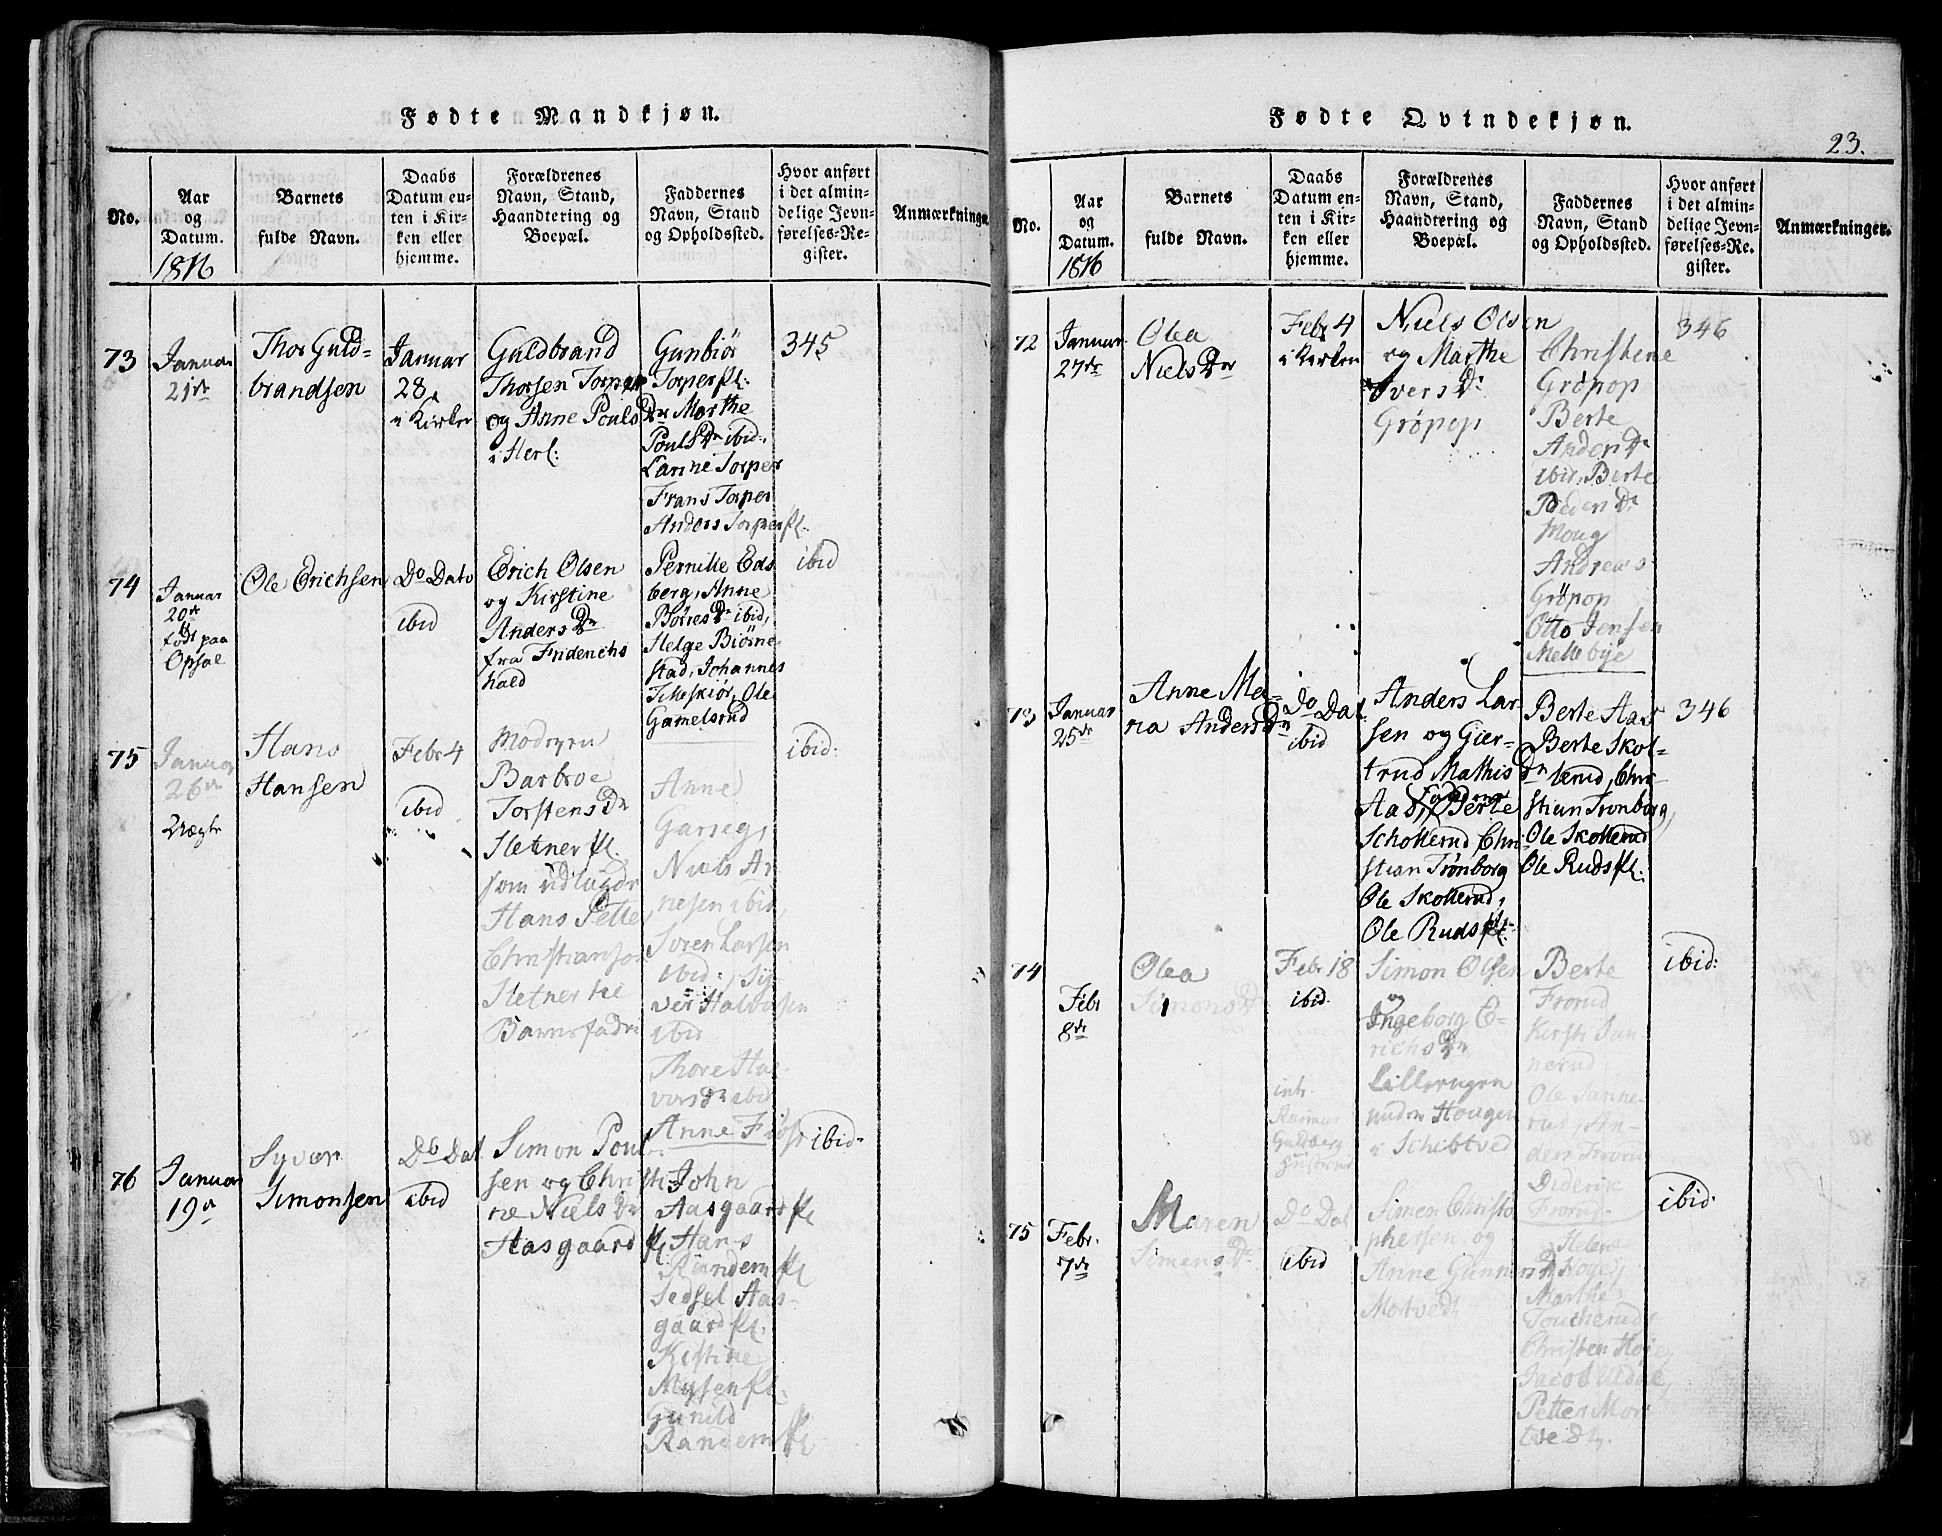 Fødte Mandkjøn.
No.
Aar
og
Datum.
1816
Barnets
fulde Navn.
Daabs
Datum en-
ten i Kir-
ken eller
hjemme.
Forældrenes
Navn, Stand,
Haandtering og
Boepæl.
Faddernes
Navn, Stand
og Opholdssted.
Hvor anført
i det almin-
delige Jevn-
førelses-Re-
gister.
Anmærkninger
73
Januar
21de
Thor Guld-
brandsen
Januar
28
i Kirken
Guldbrand
Thorsen Torper
og Anne Pouls Dr
i Herl:
Gunbiør
Torper pl:
Marthe
Pouls Dr ibid:
Torper
Frans Torper
Anders Torper pl.
345
74
Januar
20de
født paa
Opsae
Ole Erichsen
Do Dato
ibid
Erich Olsen
og Kirstine
Anders Dr
fra Friderichs
hald
Pernille Eds
berg, Anne
Børres Dr ibid,
Helge Biørne
stad, Johannes
Ole
Gamelsrud
ibid
75
Januar
26de
Uægte
Hans
Hansen
Febr 4
ibid
Modren
Barbroe
Torstens Dr
Sletner pl.
som udlagde
Hans Petter
Christianson
Sletner til
Barnefader
Anne
Garseg,
Niels Ar
nesen ibid,
Soren Larsen
ibid:, Sy
ver Halvorsen
ibid
Thore Hal
vors Dr ibid
ibid:
76
Januar
19de
Syver
Simonsen
Do Dat
ibid
Simon Poul
sen og Christi
ne Niels Dr
Aasgaard pl
Anne
John
Aasgaard pl
Hans
Randem pl
Sedsel Aas-
gaard pl.
Kistine
Mysen pl.
Gunild
Randem pl
ibid:
Fødte Qvindekjøn.
23.
No.
Aar
og
Datum.
1816
Barnets
fulde Navn.
Daabs
Datum en-
ten i Kir-
ken eller
hjemme.
Forældrenes
Navn, Stand,
Haandtering og
Boepæl.
Faddernes
Navn, Stand
og Opholdssted.
Hvor anført
i det almin-
delige Jevn-
førelses-Re-
gister.
Anmærkninger.
72
Januar
27de
Olea
Niels Dr
Febr 4
i Kirken
Niels Olsen
og Marthe
Ivers Dr
Grøpop
Christene
Grøpop
Berte
Anders Dr
ibid, Berte
Peders Dr
Moug
Andreas
Grøpop
Otto Jensen
Mellebye
346
73
Januar
25de
Anne Ma-
ria Anders Dr
Do Dat.
ibid
Anders Lar
sen og Gier-
trud Mathis Dr
Aas, Berte
Schollerud Chri
stian Trønborg
Ole Skollerud,
Ole Ruds pl.
Berte Aas
Berte Skol-
lerud, Chri-
stian Tronborg,
Ole Skollerud
Ole Ruds pl.
346
74
Febr
8de
Olea
Simons Dr
Febr 18
ibid.
Simon Olsen
og
Ingeborg E-
richs Dr
under Hougen
i Schibtved
Berte
Frorud
Kirsti San
nerud
Ole Sanne-
rud, An-
ders Frorud
Diderik
Frorud
ibid:
75
Febr.
7de
Maren
Simons Dr
Do Dat
ibid
Simon Christo
phersen og
Anne Gunners Dr
Mortvedt
Helene
Høye,
Marthe
Toucherud
Christen Høie,
Jacob
Petter Mort
tvedt.
ibid.